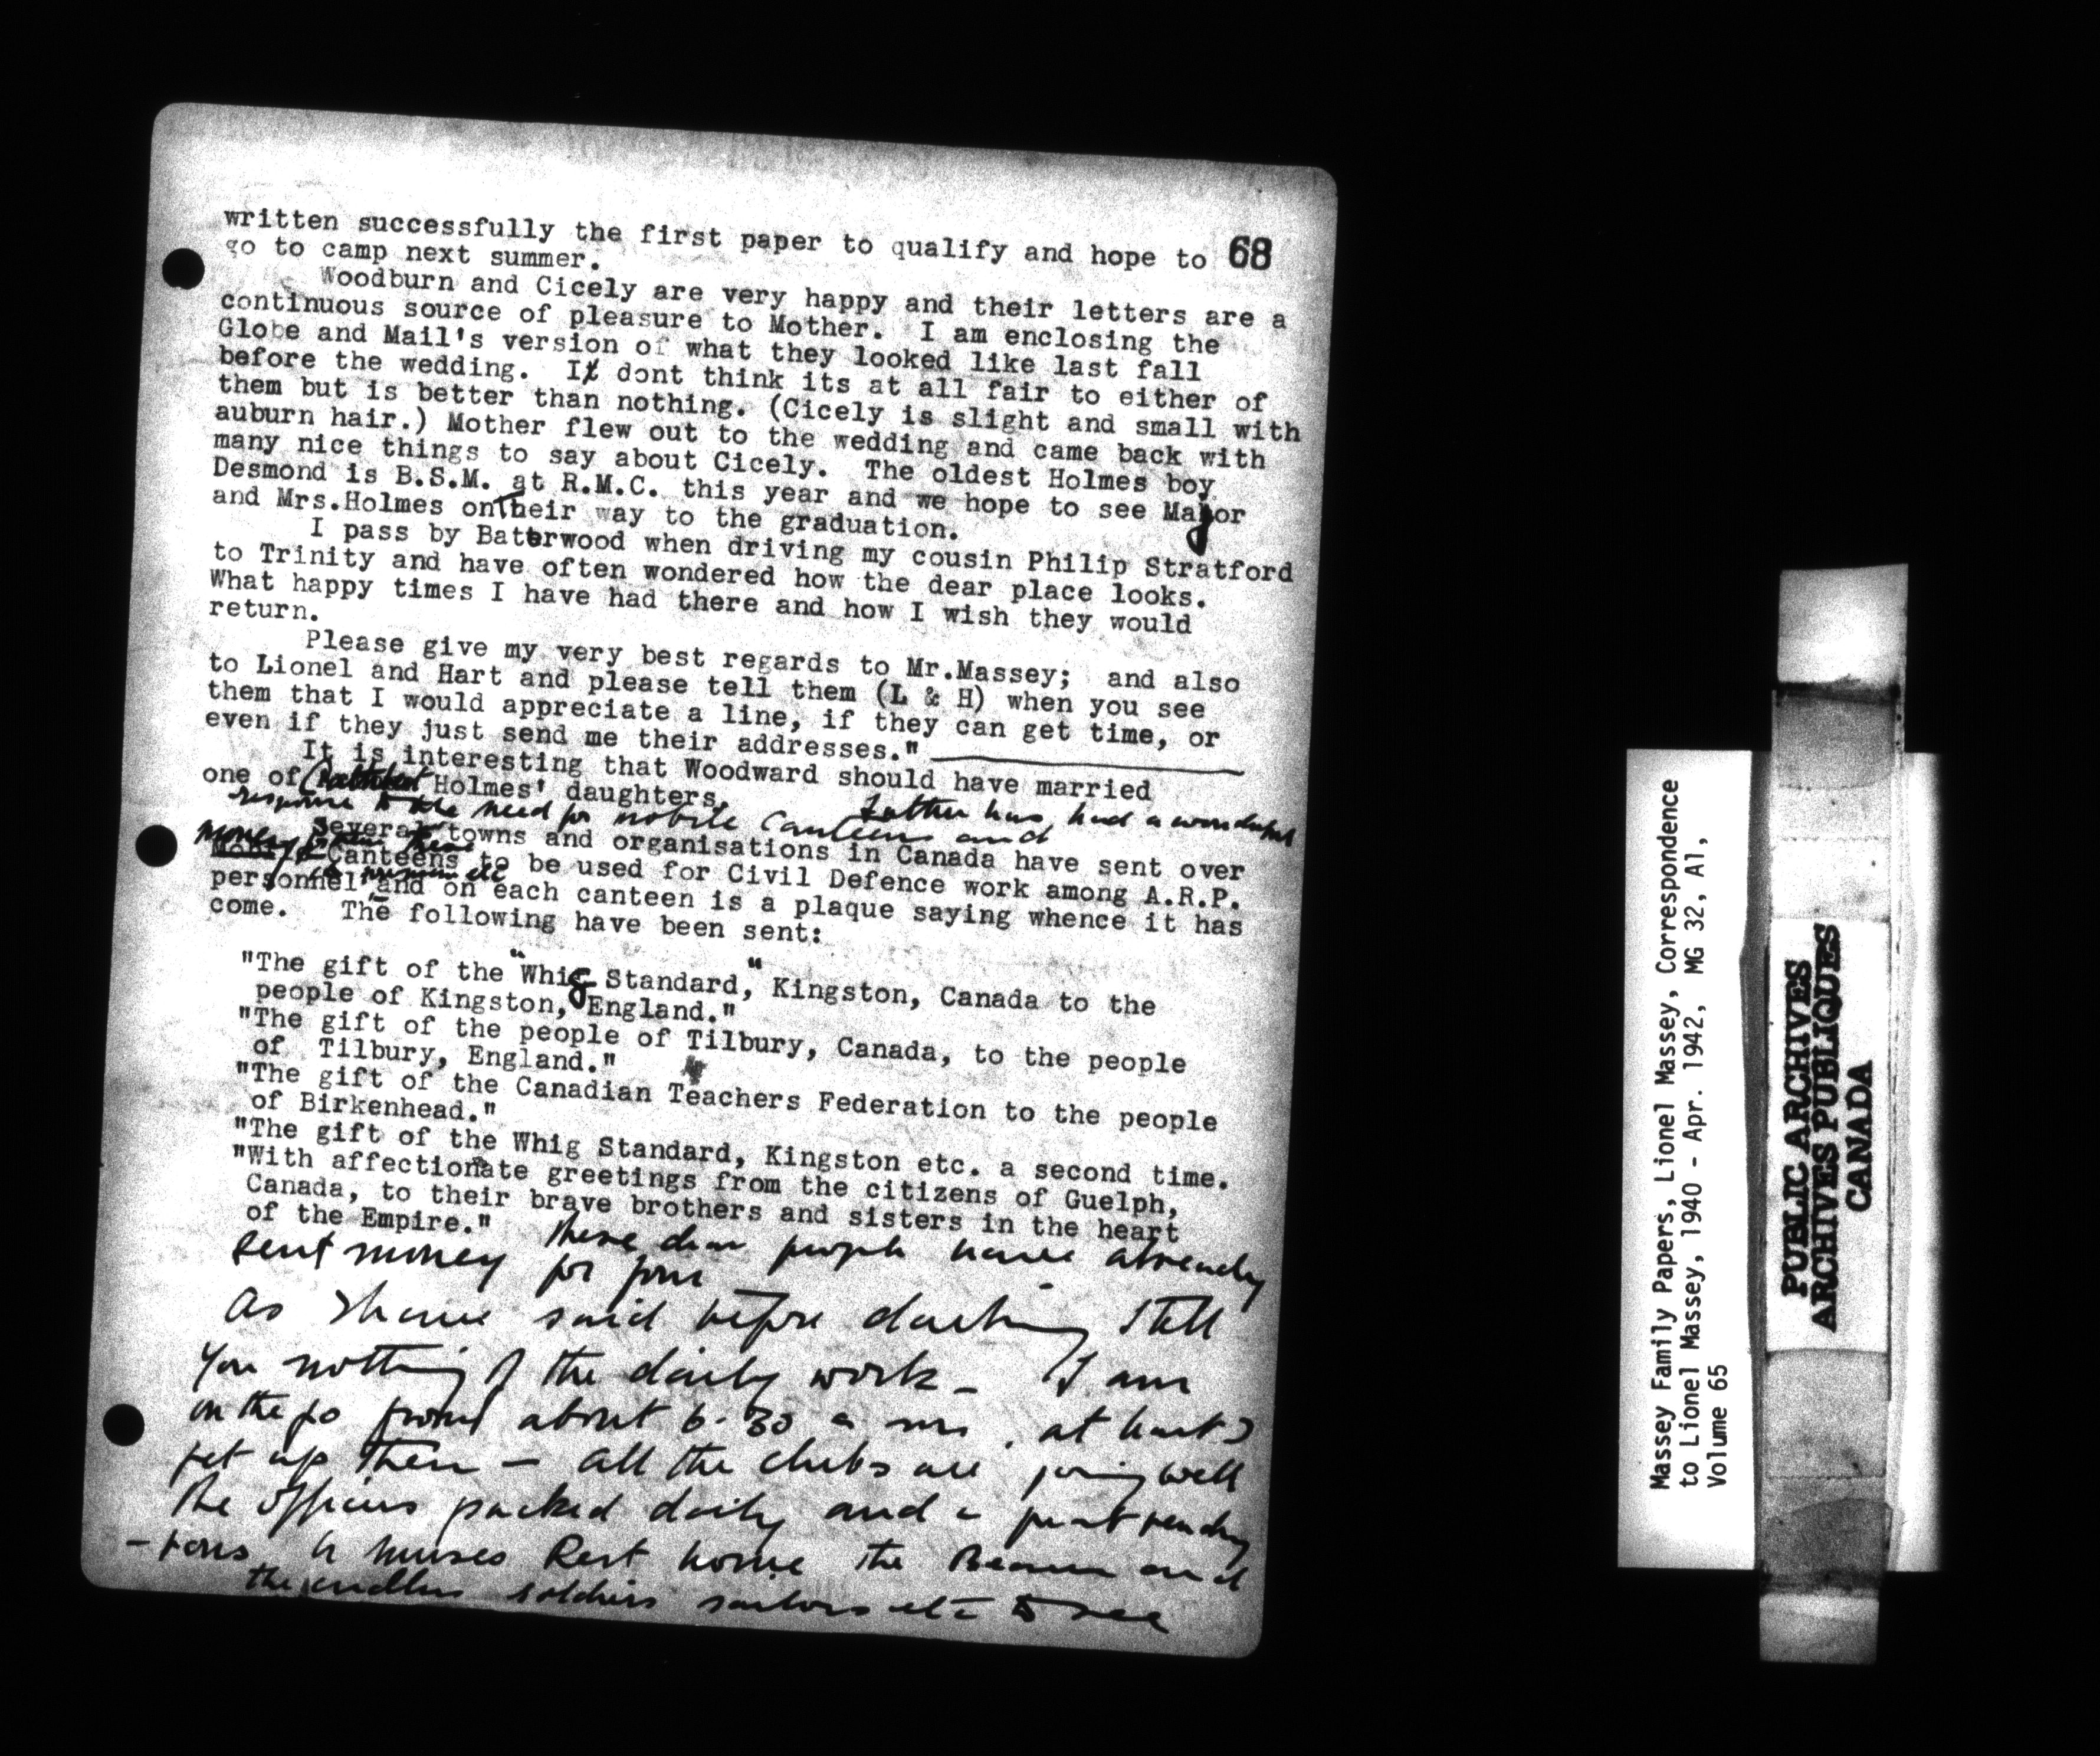 68
written successfully the first paper to qualify and hope to
go to camp next summer.
Woodburn and Cicely are very happy and their letters are a
continuous source of pleasure to Mother. I am enclosing the
Globe and Mail's version of what they looked like last fall
before the wedding. I dont think its at all fair to either of
them but is better than nothing. (Cicely is slight and small with
auburn hair.) Mother flew out to the wedding and came back with
many nice things to say about Cicely. The oldest Holmes boy
Desmond is B.S.M. at R.M.C. this year and we hope to see Major
and Mrs.Holmes on their way to the graduation.
I pass by Batterwood when driving my cousin Philip Stratford
to Trinity and have often wondered how the dear place looks.
What happy times I have had there and how I wish they would
return.
Please give my very best regards to Mr.Massey; and also
to Lionel and Hart and please tell them (L & H) when you see
them that I would appreciate a line, if they can get time, or
even if they just send me their addresses."
It is interesting that Woodward should have married
one of Holmes' daughters.
Father has had a wonderful
response to the need for mobile canteens and
Several towns and organisations in Canada have sent over
money for Canteens to be used for Civil Defence work among A.R.P.
personnel and on each canteen is a plaque saying whence it has
come. The following have been sent:
"The gift of the "Whig Standard," Kingston, Canada to the
people of Kingston, England."
"The gift of the people of Tilbury, Canada, to the people
of Tilbury, England."
"The gift of the Canadian Teachers Federation to the people
of Birkenhead."
"The gift of the Whig Standard, Kingston etc. a second time.
"With affectionate greetings from the citizens of Guelph,
Canada, to their brave brothers and sisters in the heart
of the Empire."
These dear people have already
sent money for four
As I have said before darling I tell
you nothing of the daily work - I am
on the go from about 6.30 a m. at least I
get up then - all the clubs are going well
the officers packed daily and a great
the nurses Rest home the Beaver and
the endless soldiers sailors etc to see
Massey Family Papers, Lionel Massey, Correspondence
to Lionel Massey, 1940 - Apr. 1942, MG 32, A1,
Volume 65
PUBLIC ARCHIVES
ARCHIVES PUBLIQUES
CANADA